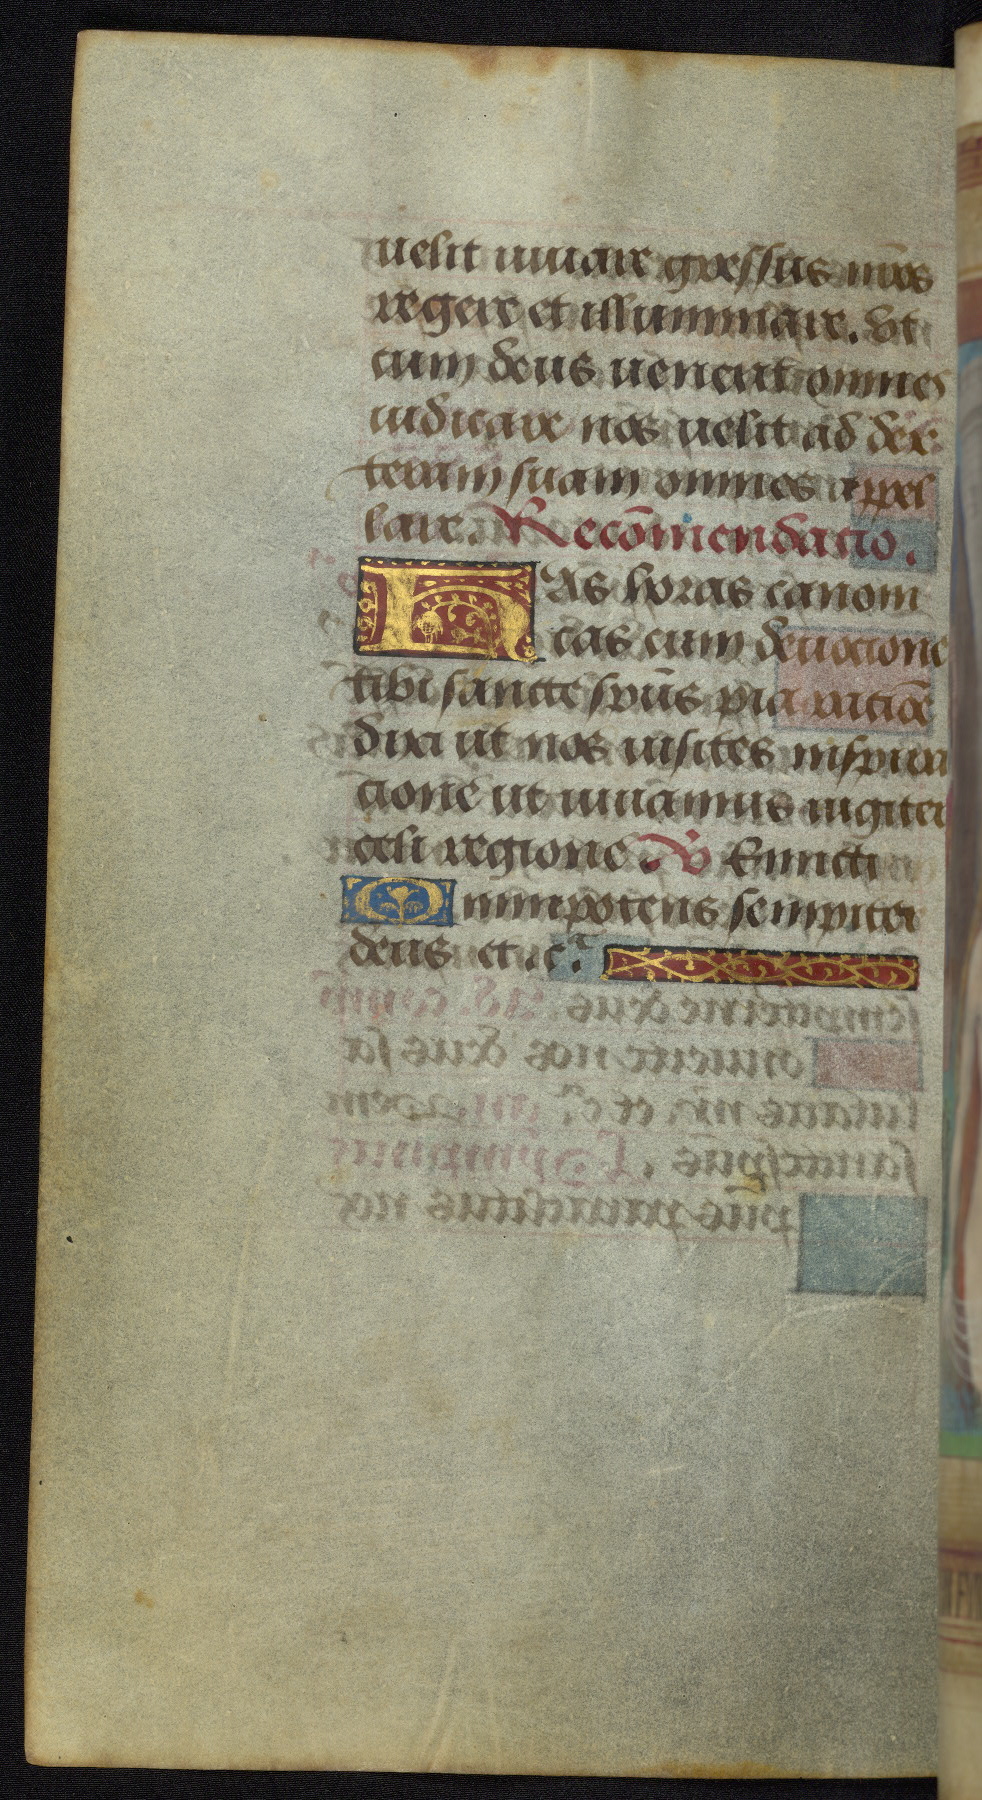 uelit iuuare gressus nr̄os
regere et illuminare. Vt
cum deus uenerit omnes
iudicare nos uelit ad dex
teram suam omnes appel
lare. Recōmendatio.
HAs horas canoni
cas cum deuocione
tibi sancte sp̄us pia raciōe
dixi ut nos uisites inspira
cione ut uiuamus iugiter
celi regione. V Emicti
Omnipotens sempiter
deus et .c̄.